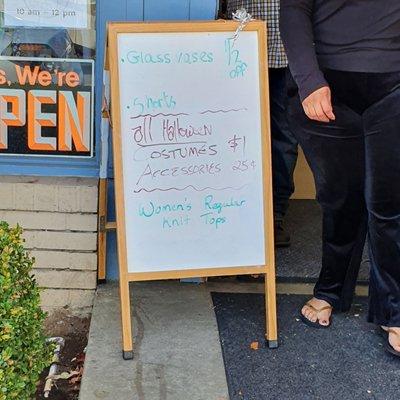 10 am - 12 pm
s. We're
OPEN
• Glass vases 1/2 off
• Shorts
All Halloween
Costumes $1
Accessories 25¢
Women's Regular
Knit Tops